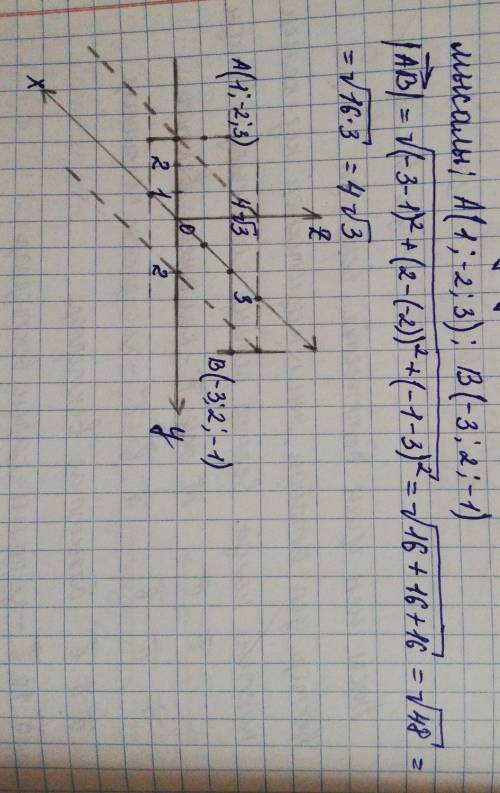 мысалы; A(1;-2;3); B(-3;2;-1)
|AB| = √(-3-1)² + (2-(-2))² + (-1-3)² = √16+16+16 = √48 =
= √16·3 = 4√3
z
A(1;-2;3)
4√3
3
B(-3;2;-1)
2
1
0
2
y
x